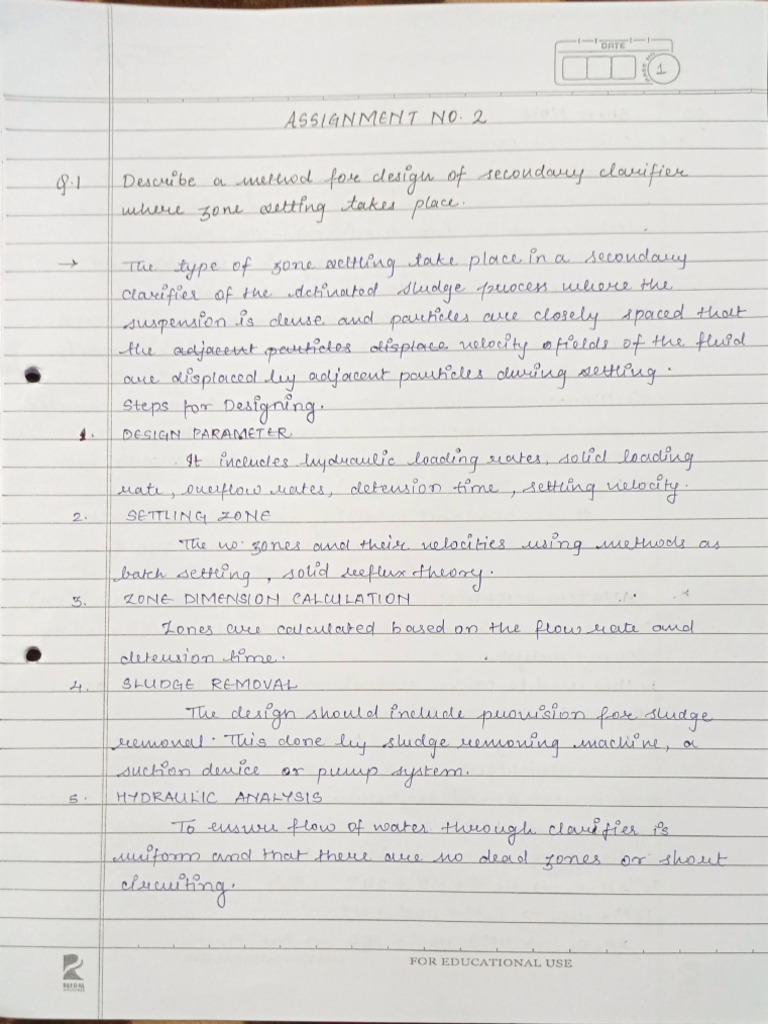 DATE
1
ASSIGNMENT NO. 2
Q.1 Describe a method for design of secondary clarifier
where zone settling takes place.
→ The type of zone settling take place in a secondary
clarifier of the Activated sludge process where the
suspension is dense and particles are closely spaced that
the adjacent particles displace velocity ofields of the fluid
are displaced by adjacent particles during settling.
Steps for Designing.
1. DESIGN PARAMETER
It includes hydraulic loading rates, solid loading
rate, overflow rates, detension time, settling velocity.
2. SETTLING ZONE
The no. zones and their velocities using methods as
batch settling, solid reflux theory.
3. ZONE DIMENSION CALCULATION
Zones are calculated based on the flow rate and
detension time.
4. SLUDGE REMOVAL
The design should include provision for sludge
removal. This done by sludge removing machine, a
suction device or pump system.
5. HYDRAULIC ANALYSIS
To ensure flow of water through clarifier is
uniform and that there are no dead zones or short
circuiting.
FOR EDUCATIONAL USE